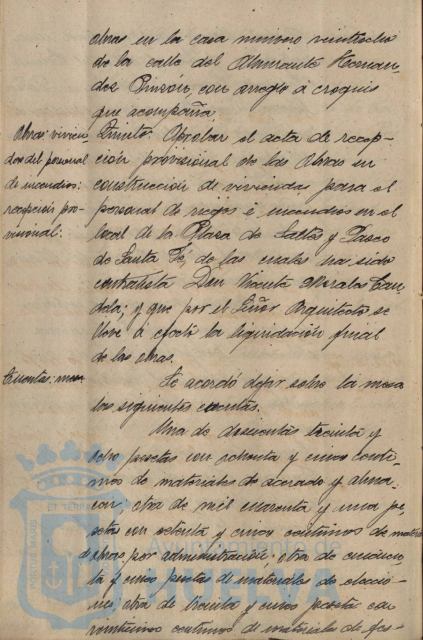 obras en la casa número veintiocho
de la calle del Almirante Hernan-
dez Pinzon, con arreglo á croquis
que acompaña.
Obras: vivien-
das del personal
de incendios:
recepción pro-
visional:
Quinto: Aprobar el acta de recep-
ción provisional de las obras en
construcción de viviendas para el
personal de riegos é incendios en el
local de la Plaza de Saltés y Paseo
de Santa Fé, de las cuales ha sido
contratista Don Vicente Morales Can-
dela; y que por el Señor Arquitecto se
lleve á efecto la liquidación final
de las obras.
Cuentas: mesa
Se acordó dejar sobre la mesa
las siguientes cuentas.
Una de doscientas treinta y
ocho pesetas con ochenta y cinco centi-
mos de materiales de acerado y alma-
cen, otra de mil cuarenta y una pe-
setas con setenta y cinco centimos de materiales
de obras por administración, otra de cincuen-
ta y cinco pesetas de materiales de eleccio-
nes, otra de treinta y cinco pesetas con
veinticinco centimos de materiales de fes-
AYUNTAMIENTO DE
HUELVA